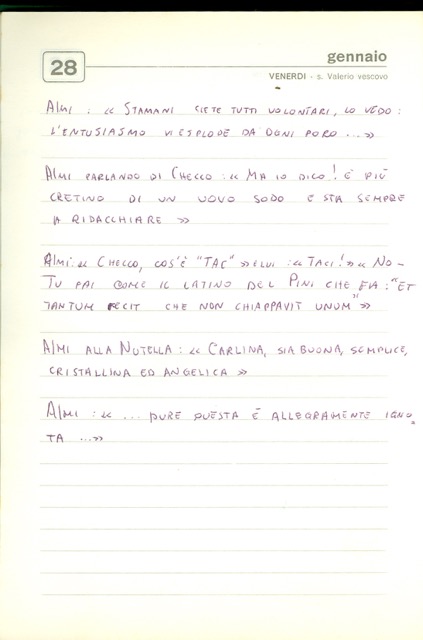 28
gennaio
VENERDI - s. Valerio vescovo
Almi : « STAMANI SIETE TUTTI VOLONTARI, LO VEDO :
L'ENTUSIASMO VI ESPLODE DA OGNI PORO ... »
Almi PARLANDO DI CHECCO : « MA IO DICO ! È PIÙ
CRETINO DI UN UOVO SODO E STA SEMPRE
A RIDACCHIARE »
Almi : « CHECCO, COS'È "TAC" » E LUI : « TACI ! » « NO -
TU FAI COME IL LATINO DEL PINI CHE FA : "ET
TANTUM FECIT CHE NON CHIAPPAVIT UNUM" »
Almi ALLA NUTELLA : « CARLINA, SIA BUONA, SEMPLICE,
CRISTALLINA ED ANGELICA »
Almi : « ... PURE QUESTA È ALLEGRAMENTE IGNO
TA ... »